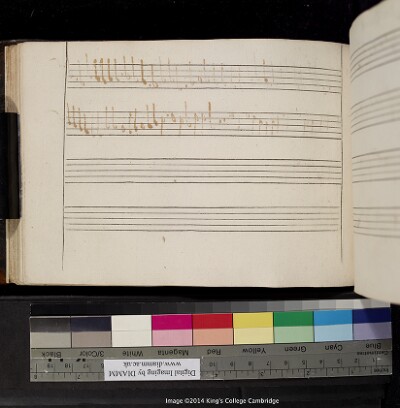 Blue
Cyan
Green
Yellow
Red
Magenta
White
3/Color
Black
Centimetres
Digital Imaging by DIAMM
www.diamm.ac.uk
Image ©2014 King's College Cambridge